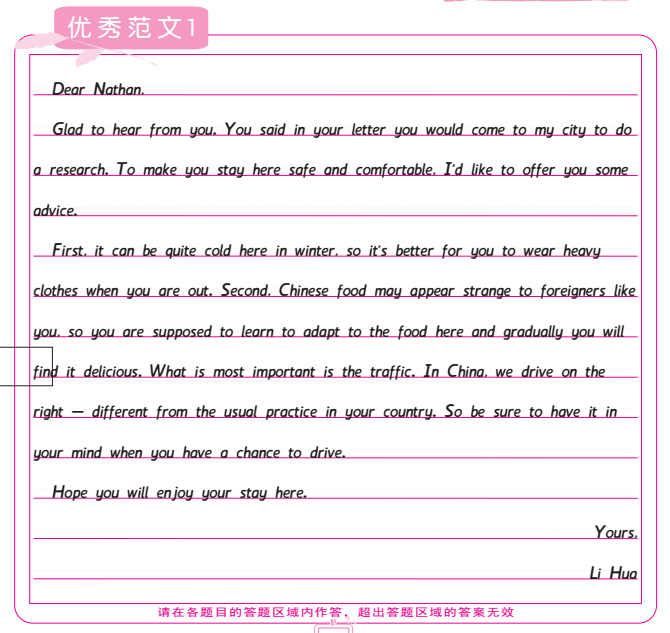 优秀范文1
Dear Nathan,
Glad to hear from you. You said in your letter you would come to my city to do
a research. To make you stay here safe and comfortable, I'd like to offer you some
advice.
First, it can be quite cold here in winter, so it's better for you to wear heavy
clothes when you are out. Second, Chinese food may appear strange to foreigners like
you, so you are supposed to learn to adapt to the food here and gradually you will
find it delicious. What is most important is the traffic. In China, we drive on the
right — different from the usual practice in your country. So be sure to have it in
your mind when you have a chance to drive.
Hope you will enjoy your stay here.
Yours,
Li Hua
请在各题目的答题区域内作答，超出答题区域的答案无效